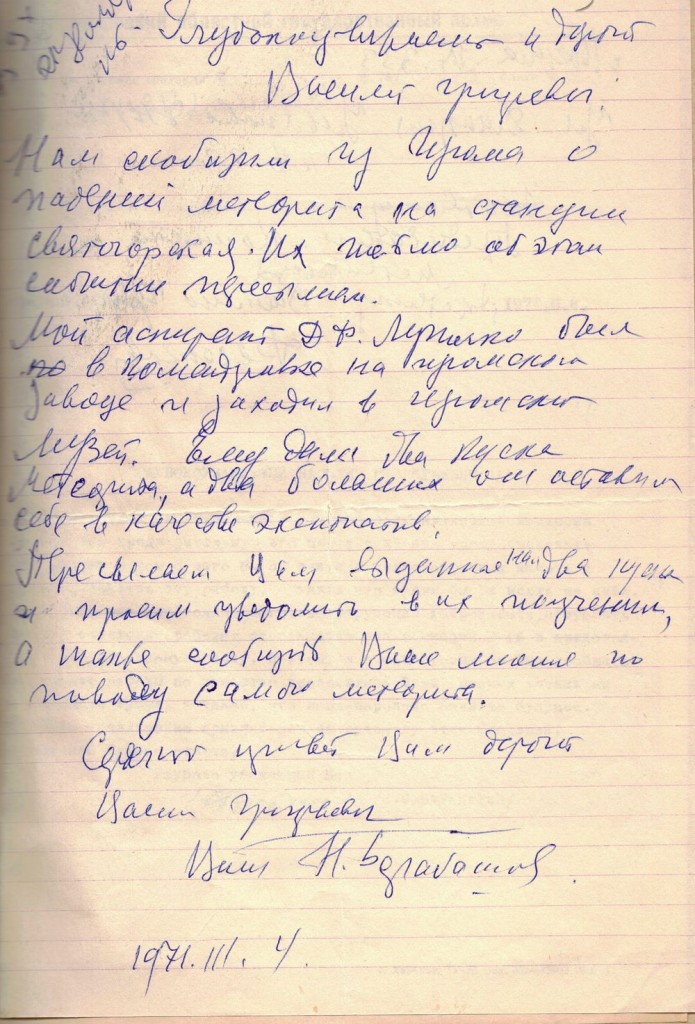 Глубокоуважаемый и дорогой
Василий Григорьевич.
Нам сообщили из Изюма о
падении метеорита на станции
Святогорская. Их письмо об этом
событии пересылаем.
Мой аспирант Д.Ф. был
в командировке на изюмском
заводе и заходил в изюмский
музей. Ему дали два куска
метеорита, а два больших они оставили
себе в качестве экспонатов.
Пересылаем Вам выданные нам два куска
и просим уведомить в их получении,
а также сообщить Ваше мнение по
поводу самого метеорита.
Сердечный привет Вам дорогой
Василий Григорьевич
Ваш Н. Барабашов
1971.III.4.